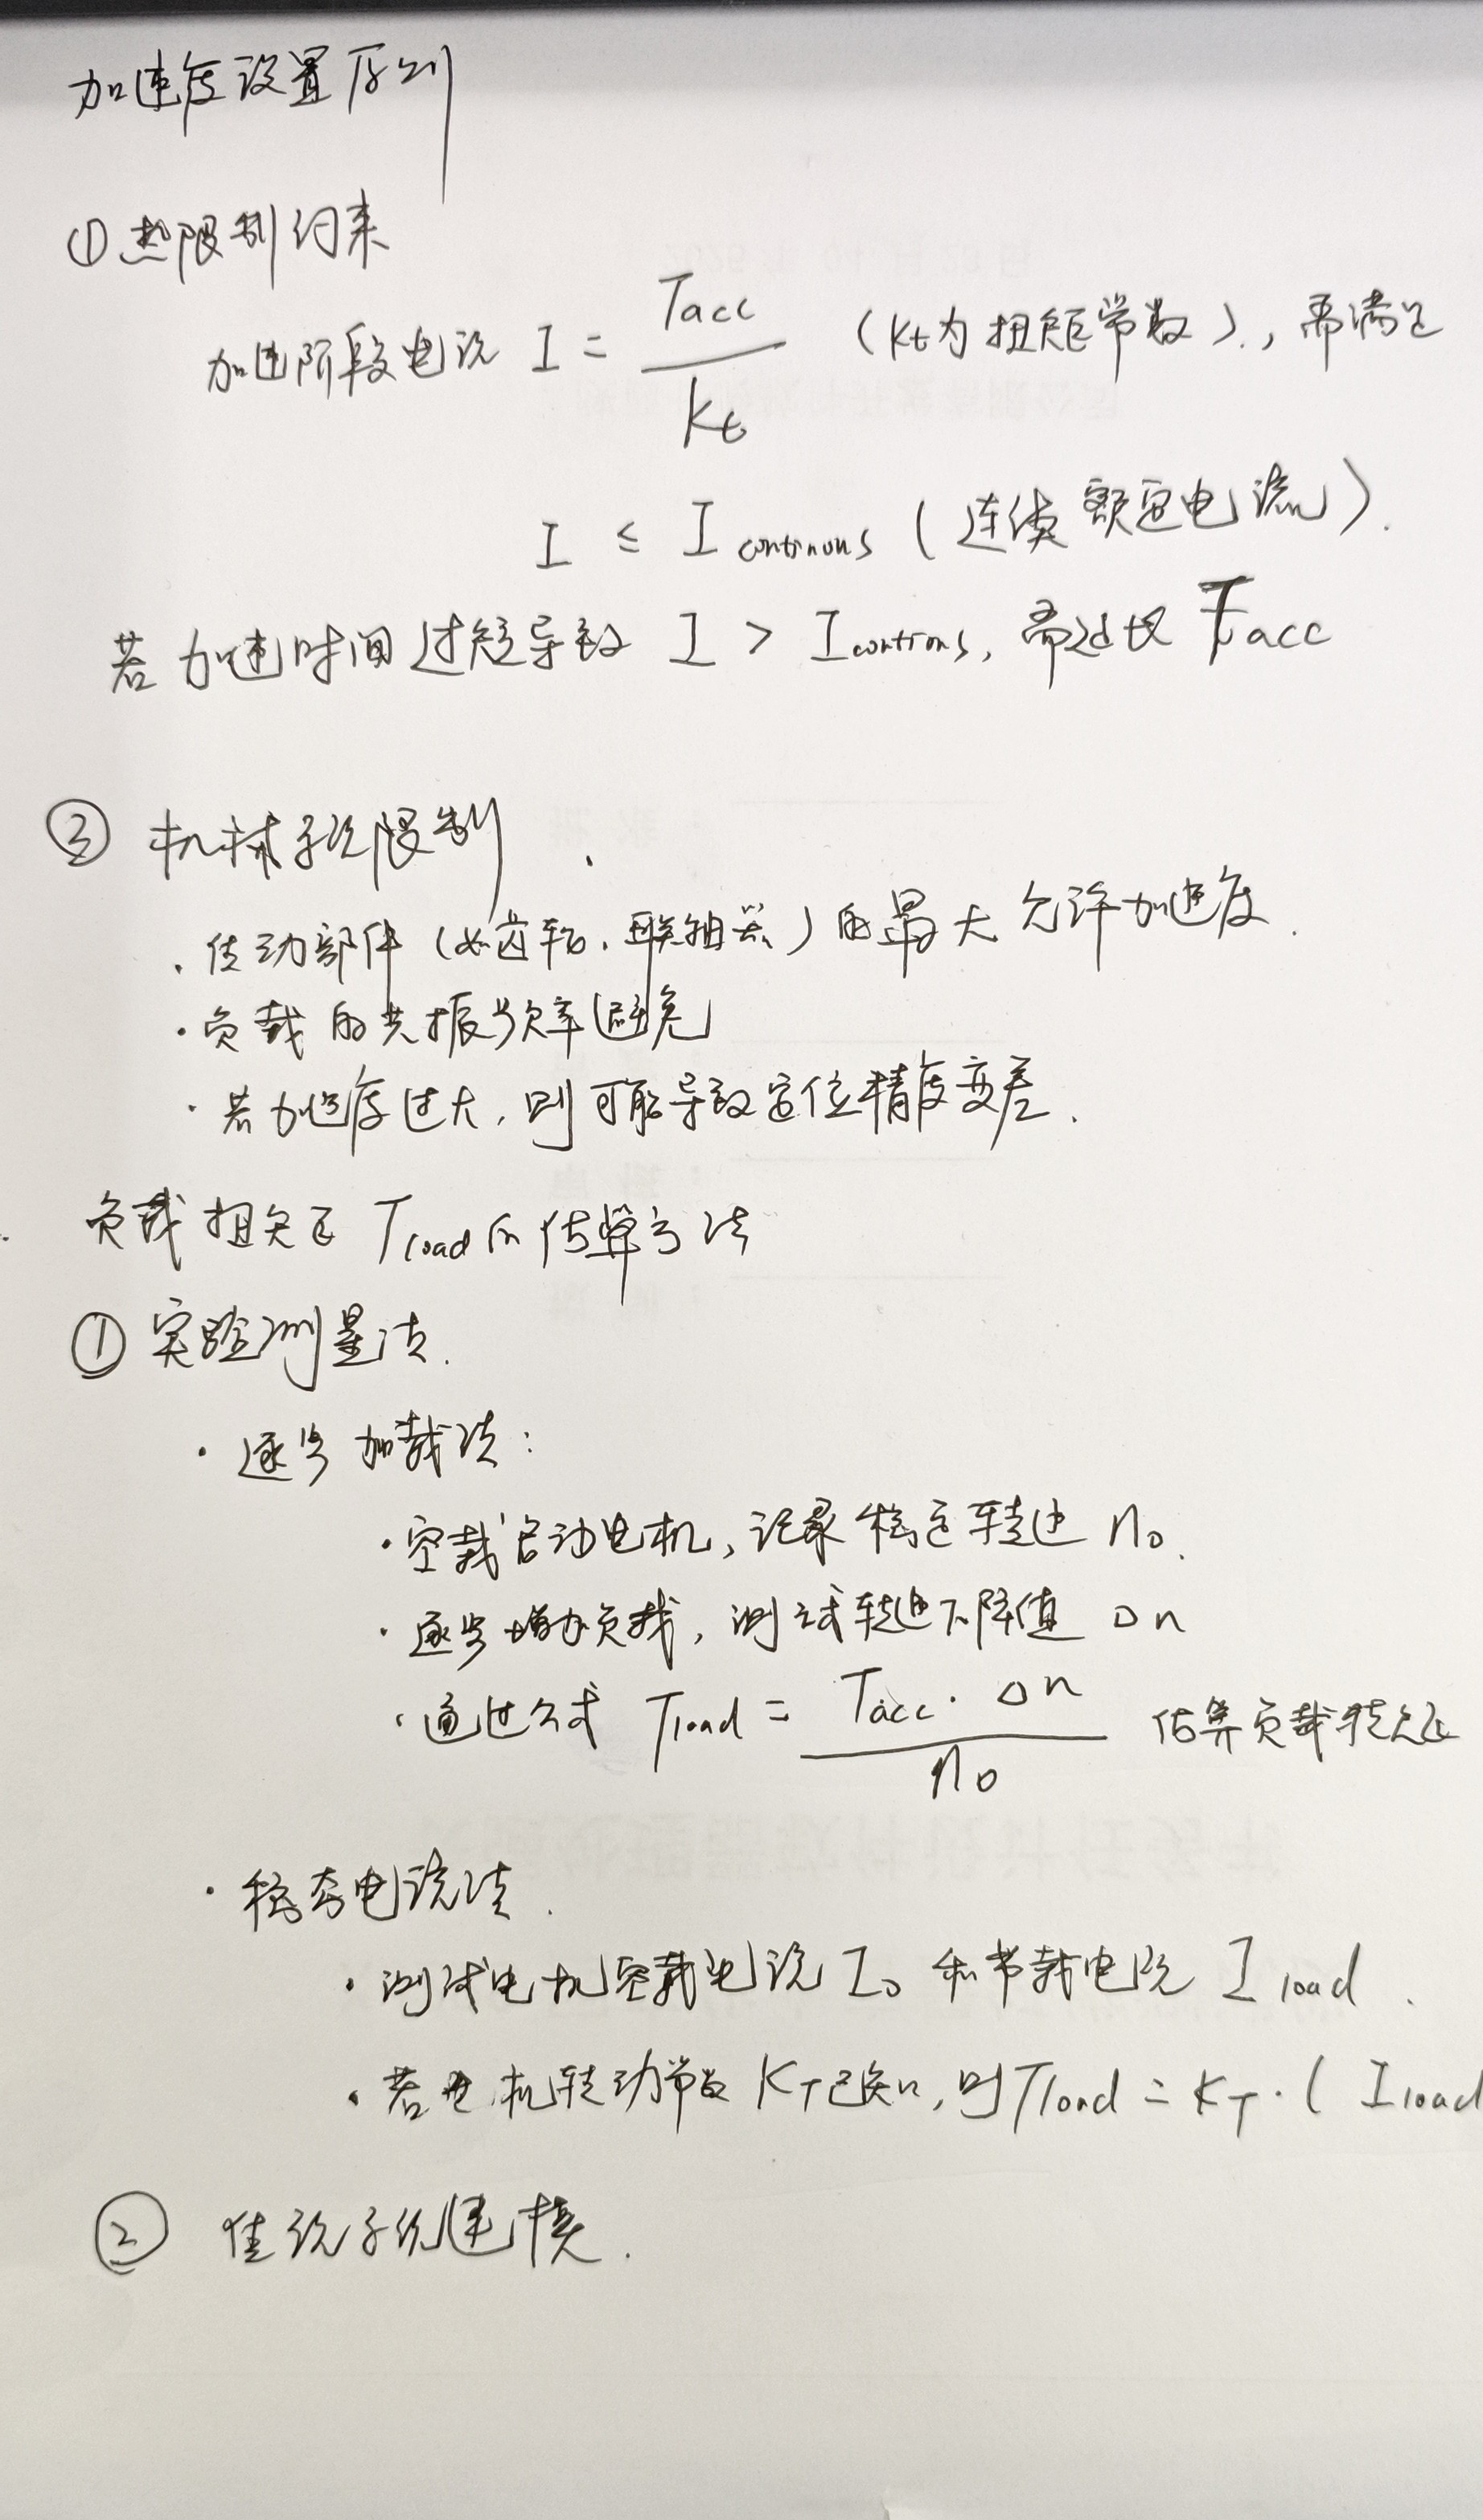 加速度设置原则
①热限制约束
加速阶段电流 I = Tacc / Kt (Kt为扭矩常数)., 需满足
I ≤ I continuous (连续额定电流).
若加速时间过短导致 I > I continuous, 需延长 Tacc
② 机械系统限制
· 传动部件 (如齿轮、联轴器) 的最大允许加速度.
· 负载的共振频率避免
· 若加速度过大, 则可能导致定位精度变差.
负载扭矩 Tload的估算方法
① 实验测量法.
· 逐步加载法:
· 空载启动电机, 记录稳定转速 n₀.
· 逐步增加负载, 测试转速下降值 Δn
· 通过公式 Tload = Tacc · Δn / n₀ 估算负载转矩
· 稳态电流法.
· 测试电机空载电流 I₀ 和带载电流 I load.
· 若电机转动常数 KT已知, 则Tload = KT · ( Iload
② 传统系统建模.